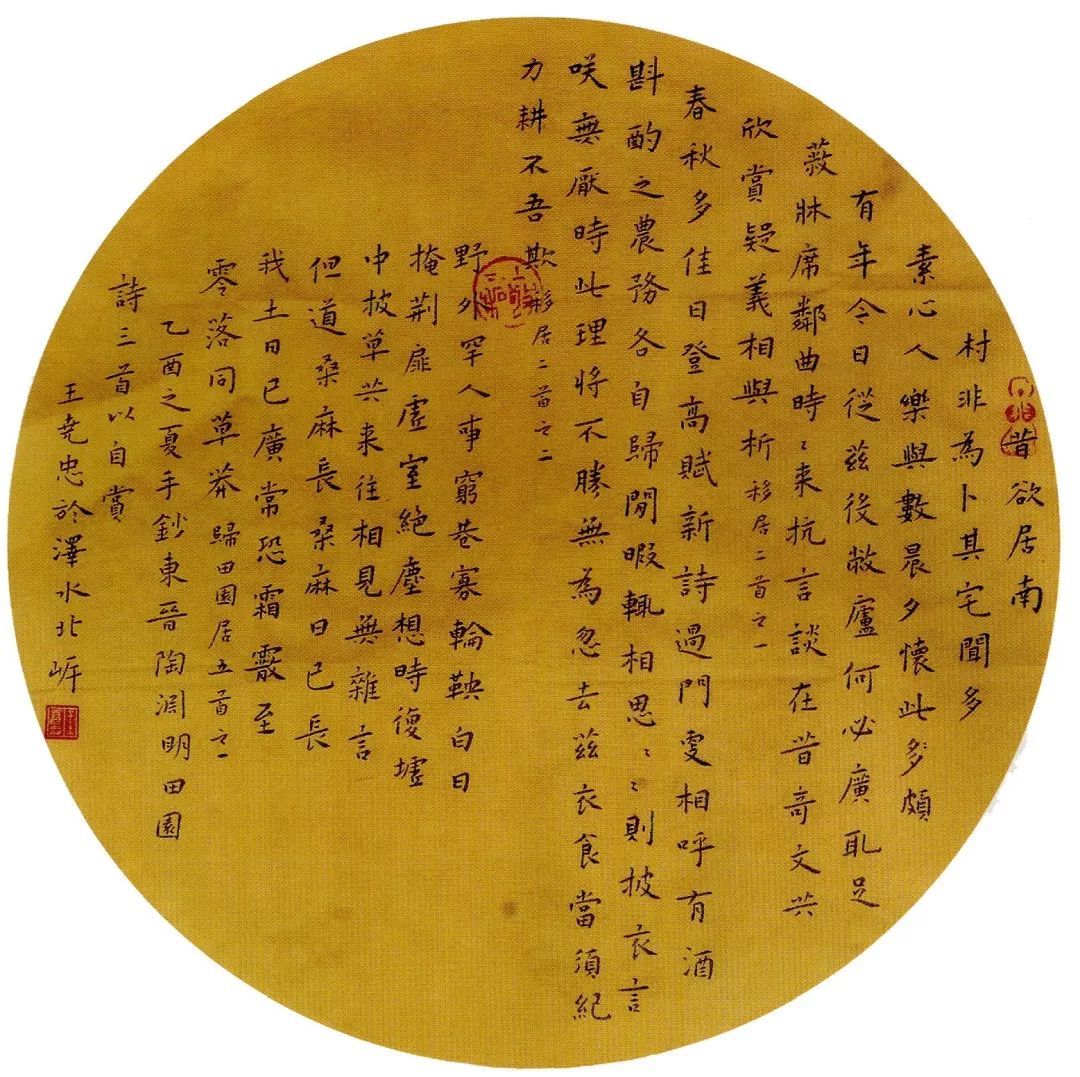 昔欲居南
村非為卜其宅聞多
素心人樂與數晨夕懷此多頗
有年今日從茲後敝廬何必廣取足
蔽牀席鄰曲時〻来抗言談在昔奇文共
欣賞疑義相與析移居二首之一
春秋多佳日登高賦新詩過門更相呼有酒
斟酌之農務各自歸閒暇輒相思〻〻則披衣言
咲無厭時此理將不勝無為忽去茲衣食當須紀
力耕不吾欺移居二首之二
野外罕人事窮巷寡輪鞅白日
掩荆扉虛室絕塵想時復墟
中披草共来往相見無雜言
但道桑麻長桑麻日已長
我土日已廣常恐霜霰至
零落同草莽歸田園居五首之一
乙酉之夏手鈔東晉陶淵明田園
詩三首以自賞
王堯忠於澤水北岸